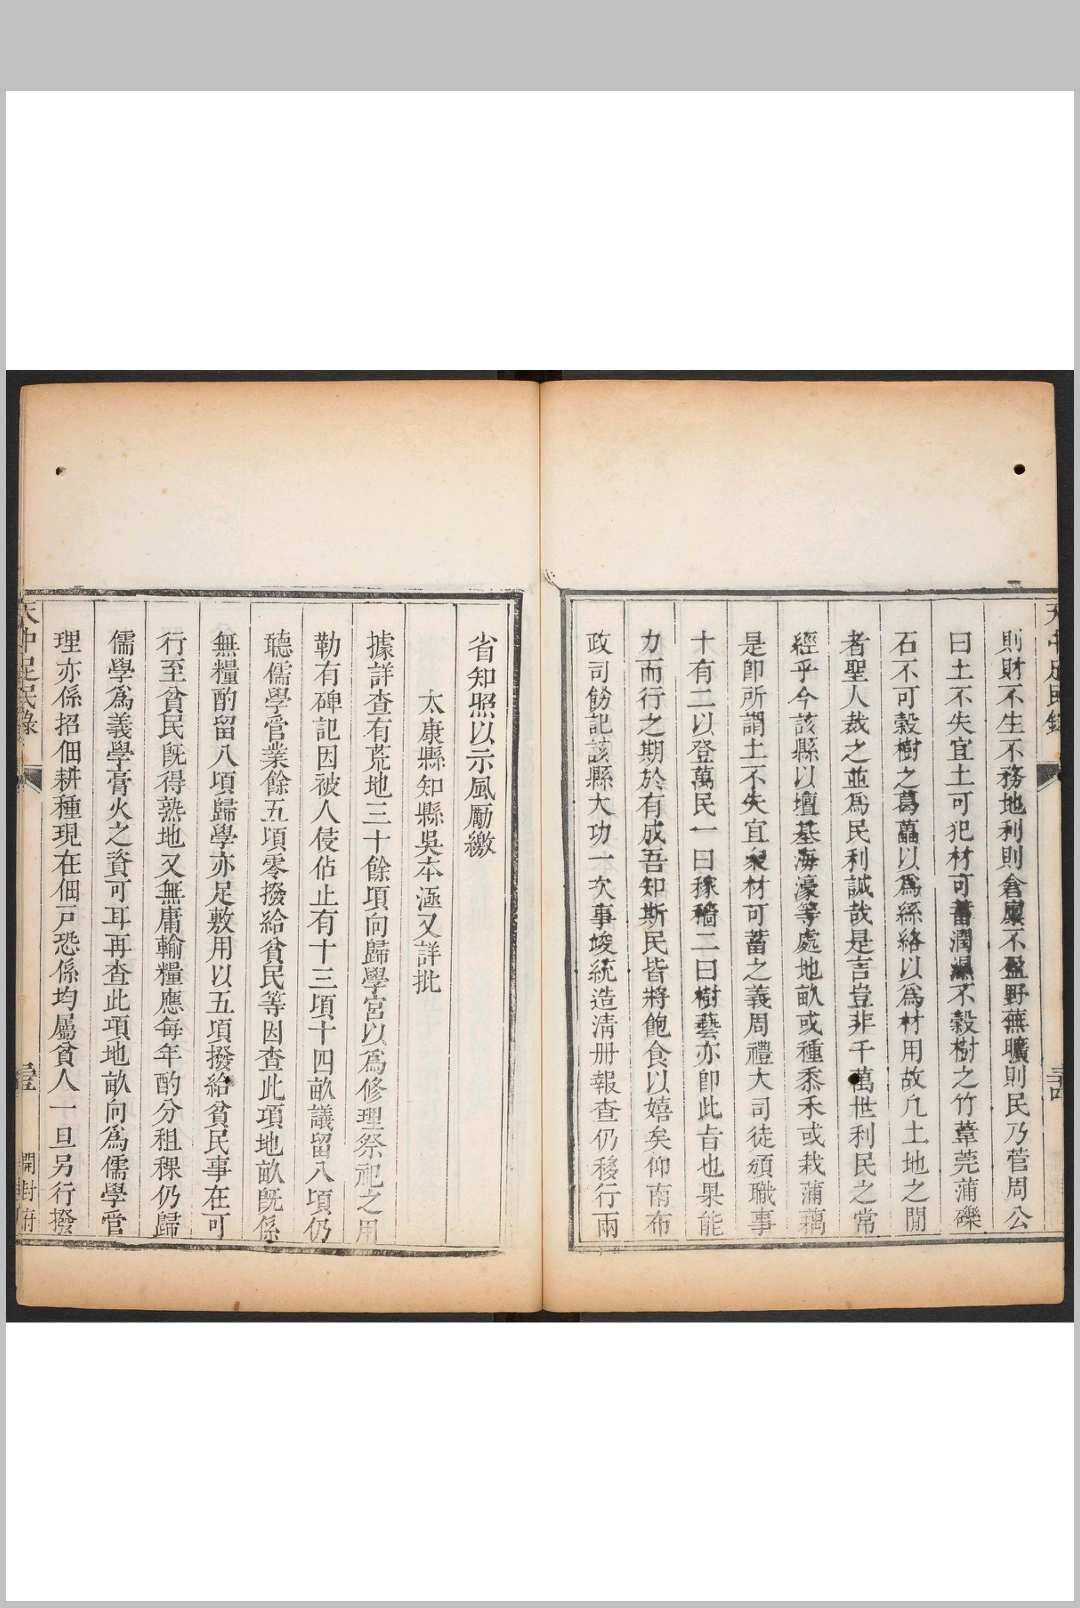 則財不生不務地利則倉廩不盈野蕪曠則民乃菅周公
曰土不失宜土可犯材可蓄潤濕不穀樹之竹葦莞蒲礫
石不可穀樹之葛藟以為絺綌以為材用故凡土地之閒
者聖人裁之並為民利誠哉是言豈非千萬世利民之常
經乎今該縣以壇基海濠等處地畝或種黍禾或栽蒲藕
是卽所謂土不失宜衆材可蓄之義周禮大司徒頒職事
十有二以登萬民一曰稼穡二曰樹藝亦卽此旨也果能
力而行之期於有成吾知斯民皆將飽食以嬉矣仰南布
政司飭記該縣大功一次事竣統造清册報查仍移行兩
省知照以示風勵繳
太康縣知縣吳本涵又詳批
據詳查有荒地三十餘項向歸學宮以為修理祭祀之用
勒有碑記因被人侵佔止有十三項十四畝議留八項仍
聽儒學管業餘五項零撥給貧民等因查此項地畝旣係
無糧酌留八項歸學亦足敷用以五項撥給貧民事在可
行至貧民旣得熟地又無庸輸糧應每年酌分租稞仍歸
儒學為義學膏火之資可耳再查此項地畝向為儒學管
理亦係招佃耕種現在佃戶恐係均屬貧人一旦另行撥
天中足民錄
開封府